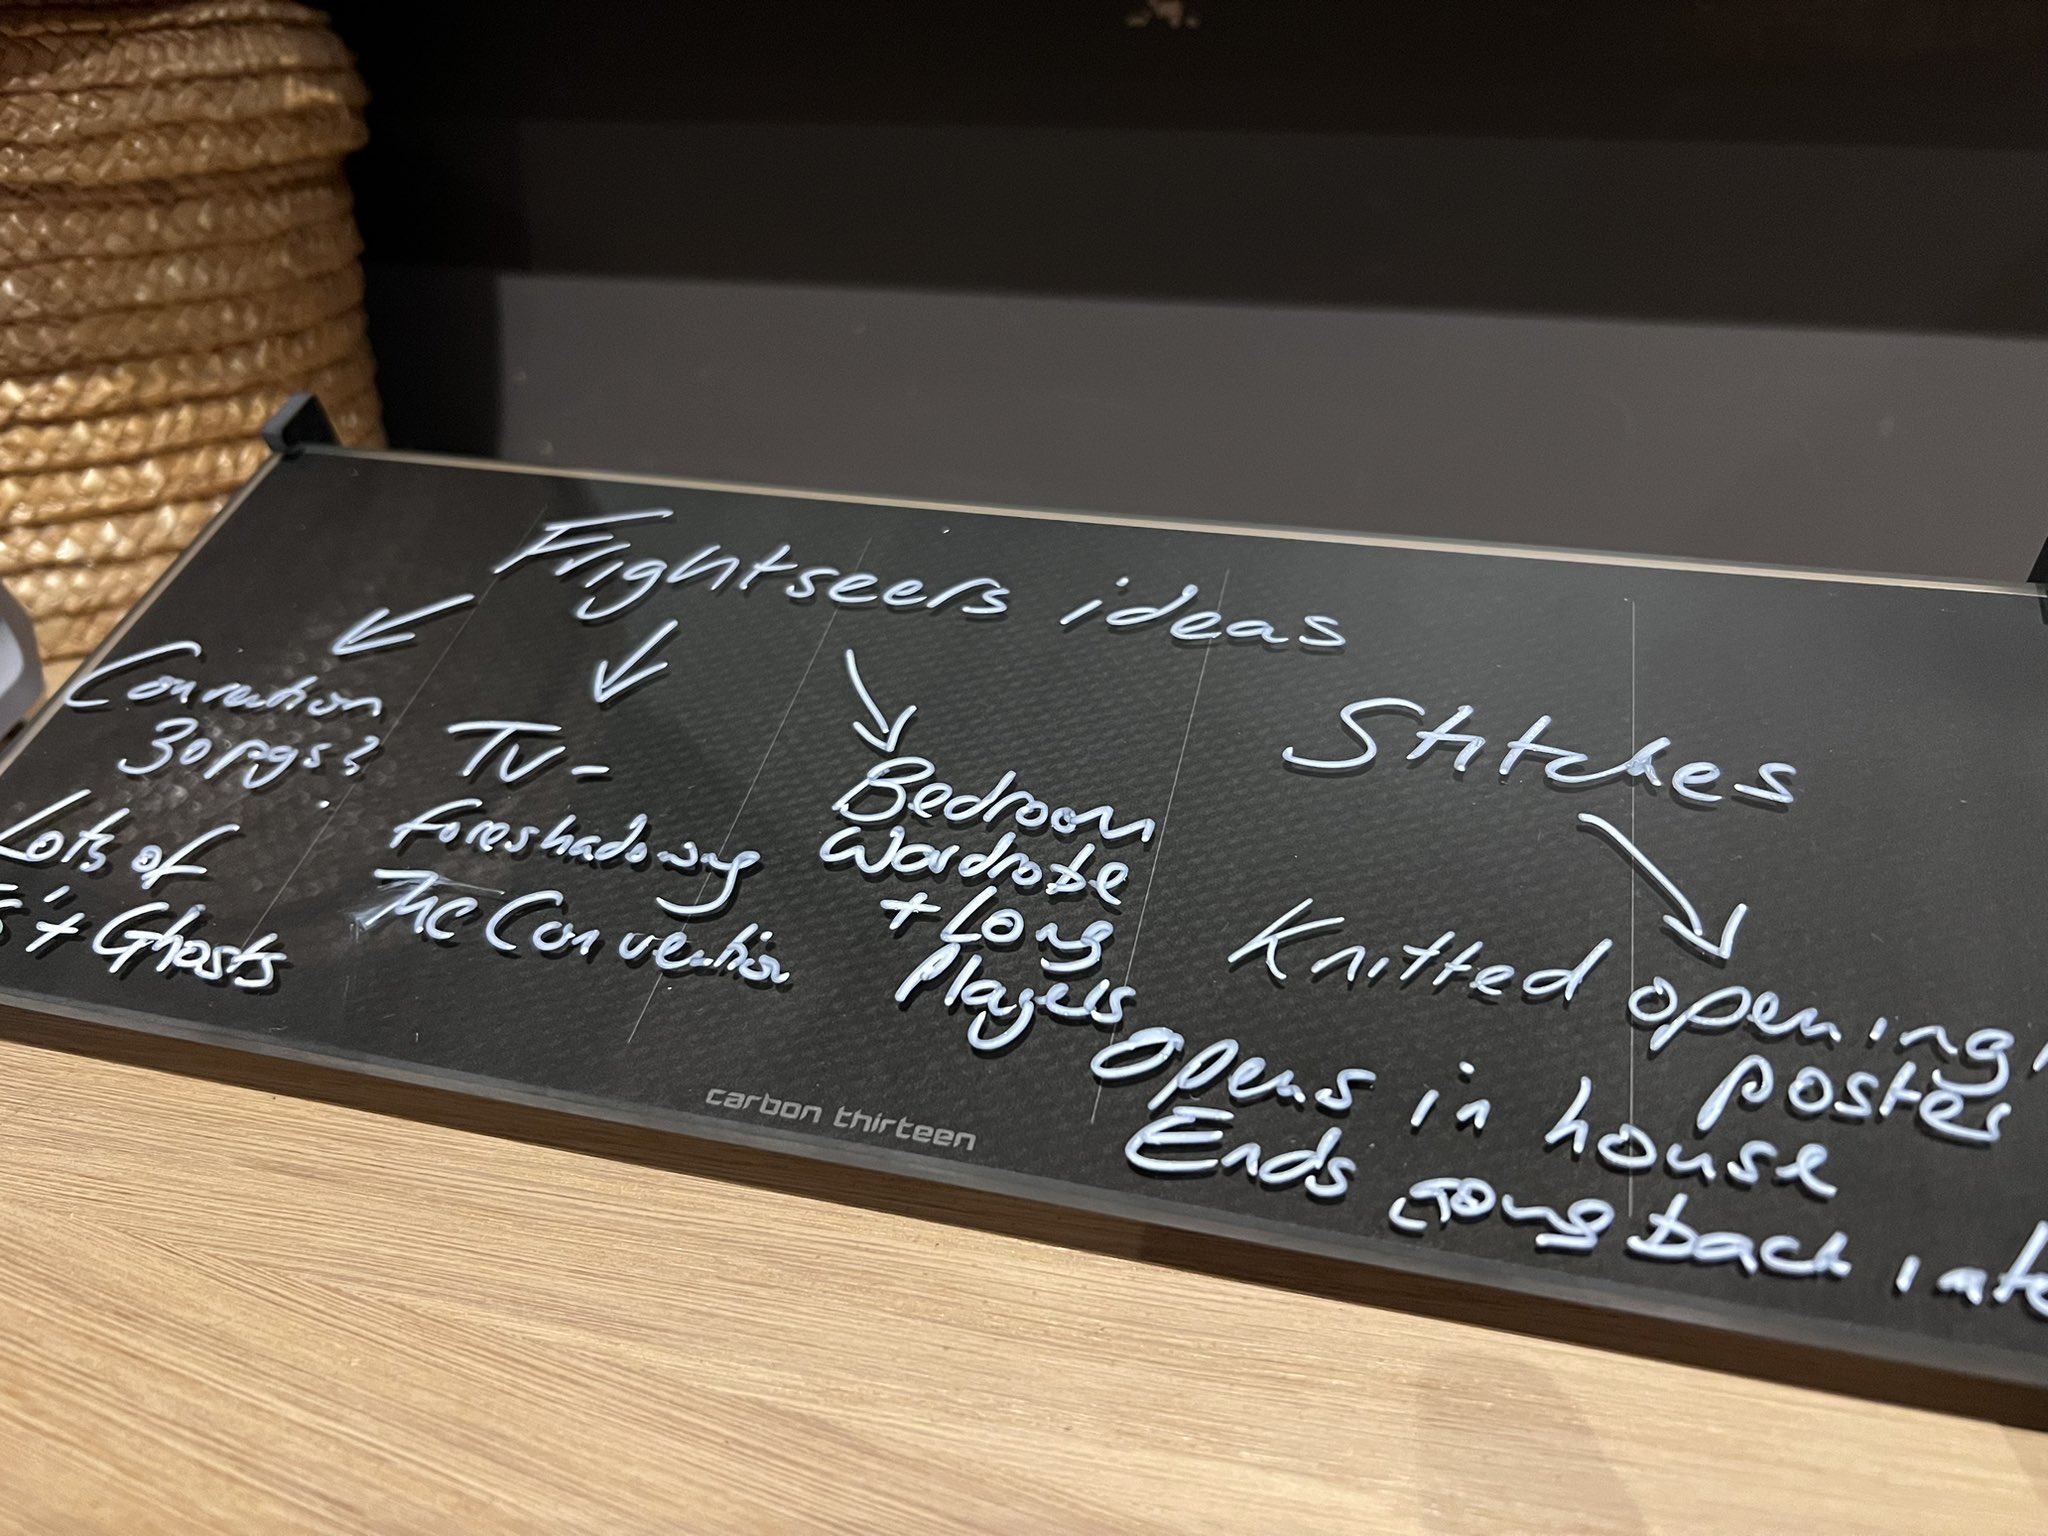 Frightseers ideas
Convention
30pgs?
Lots of
+ Ghosts
TV -
foreshadowing
The Convention
Bedroom
Wardrobe
+ Long
Players
Stitches
Knitted opening
poster
Opens in house
Ends going back into
carbon thirteen